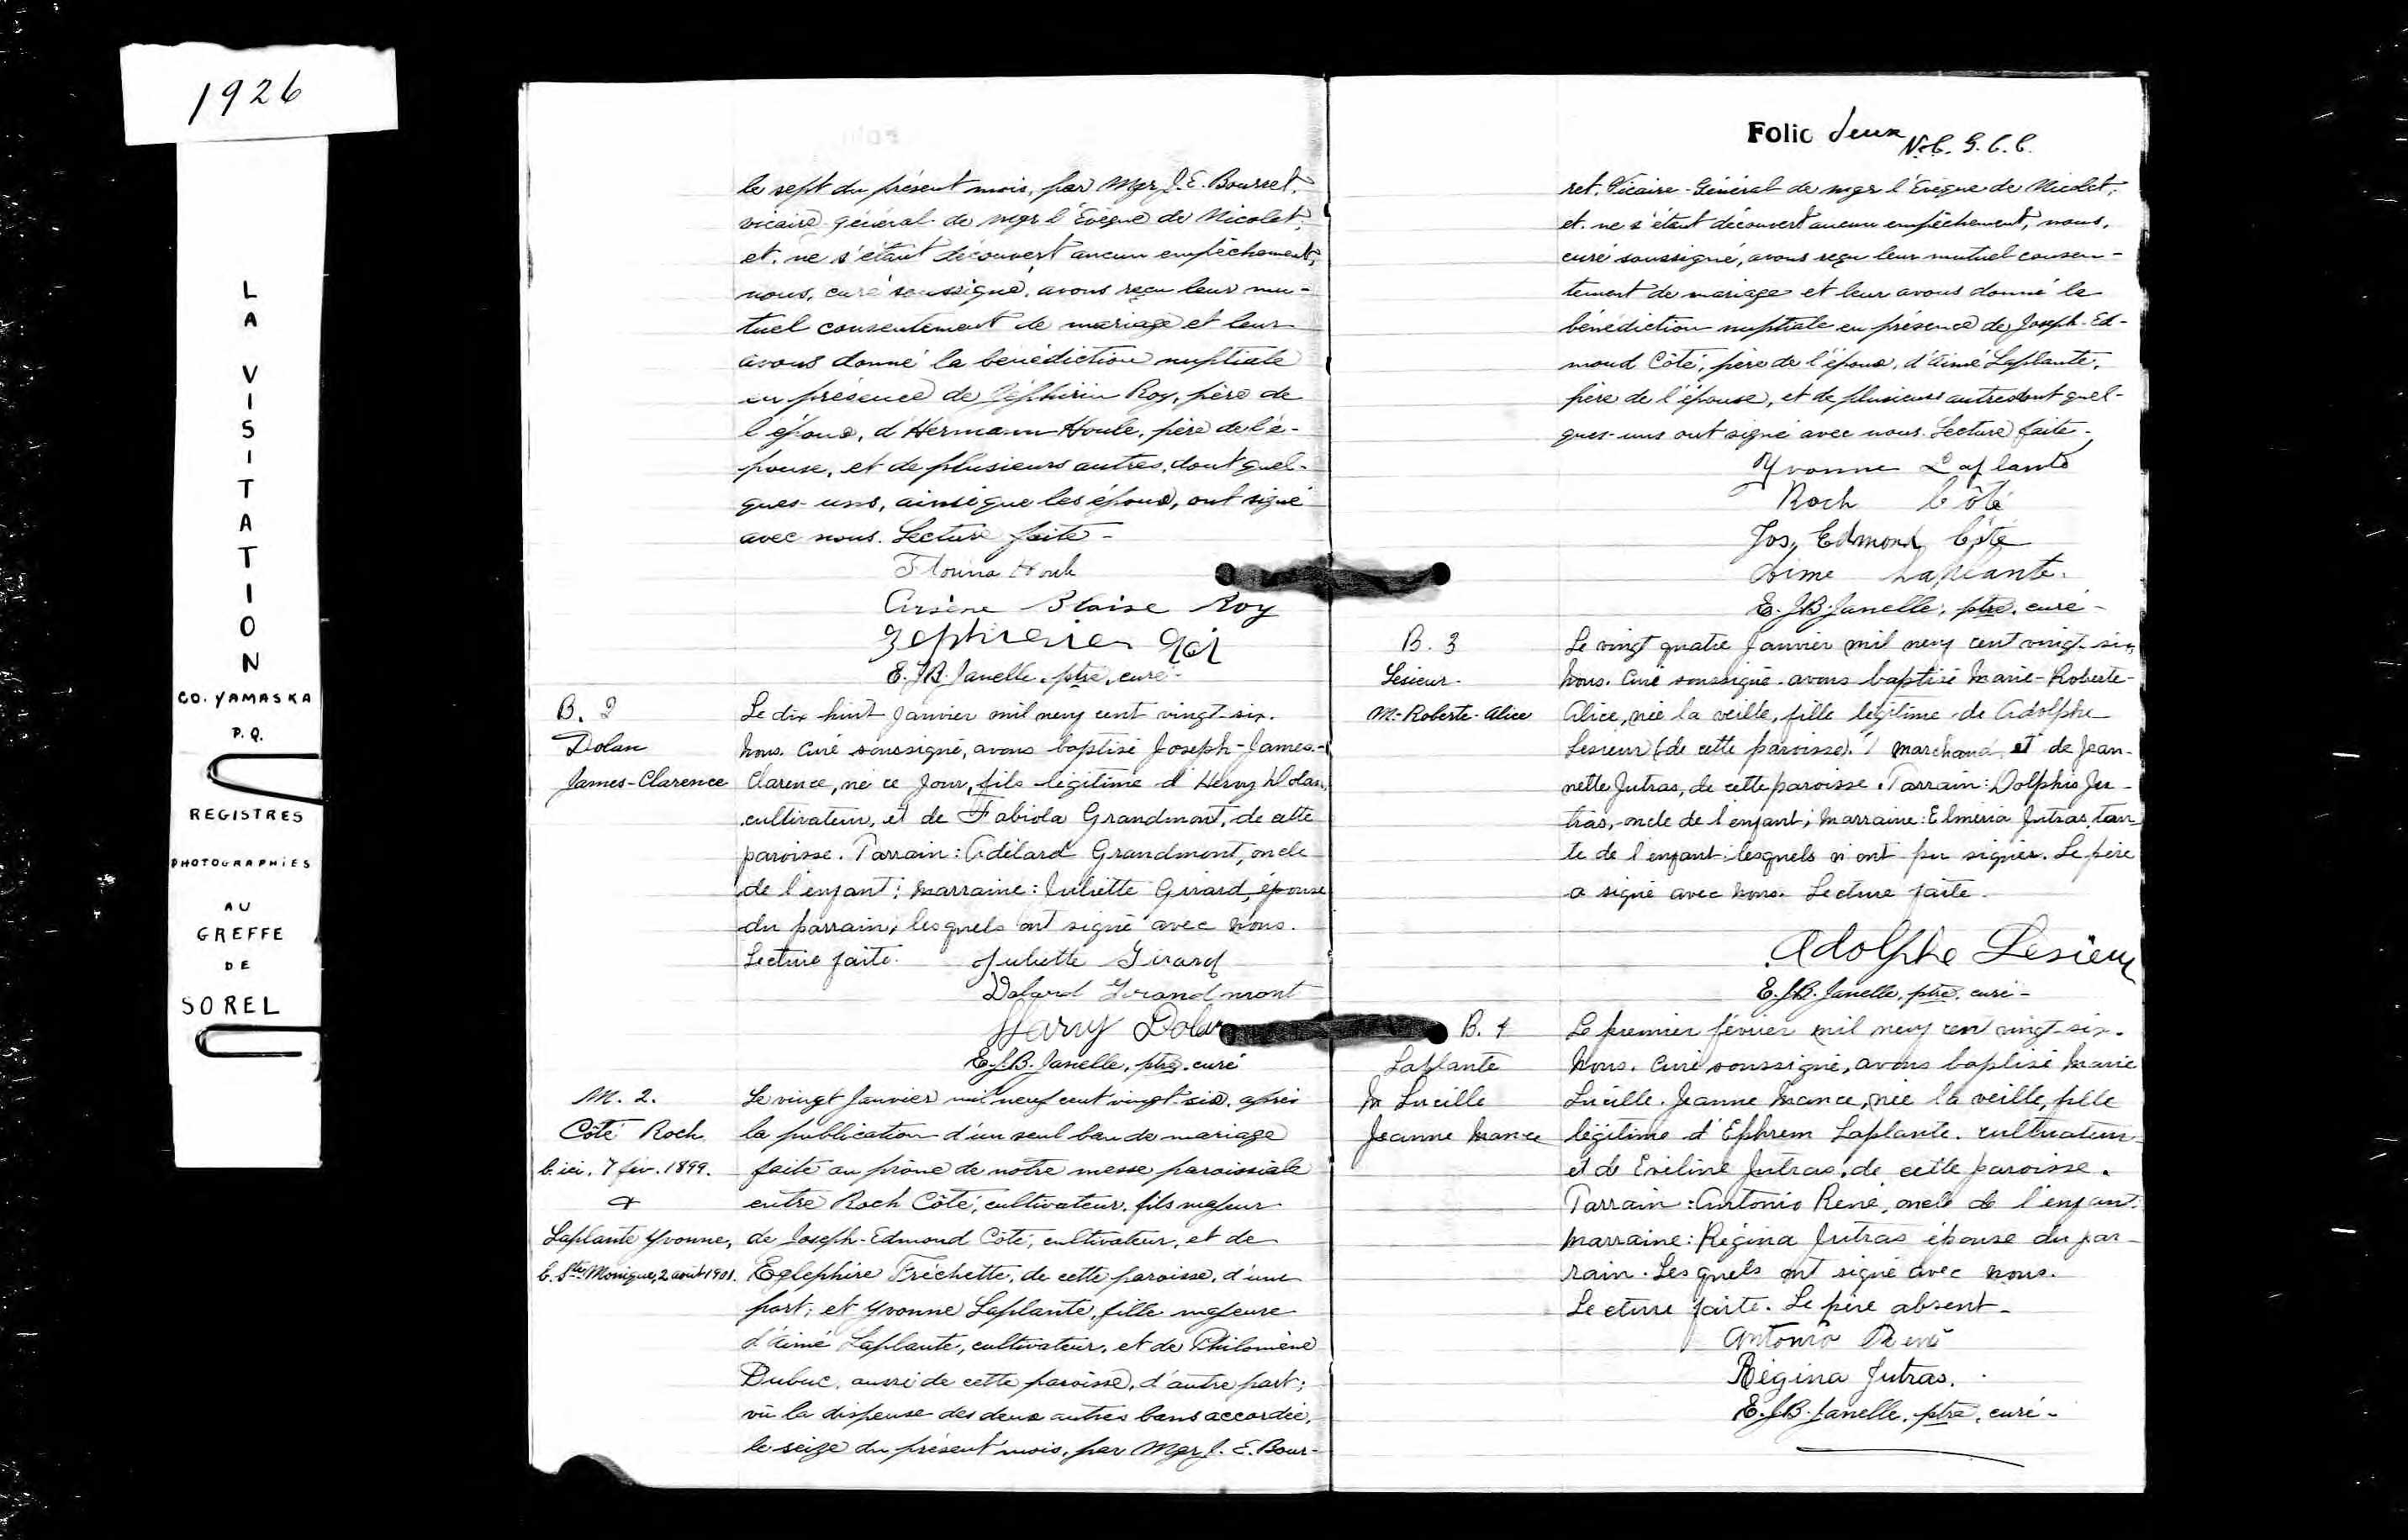 1926
LA VISITATION
CO. YAMASKA
P.Q.
REGISTRES
PHOTOGRAPHIES
AU
GREFFE
DE
SOREL
le sept du présent mois, par Mgr J. E. Bourret,
vicaire général de Mgr l'Evêque de Nicolet;
et ne s'étant découvert aucun empêchement,
nous, curé soussigné, avons reçu leur mu-
tuel consentement de mariage et leur
avons donné la bénédiction nuptiale
en présence de Zéphirin Roy, père de
l'époux, d'Hermann Houle, père de l'é-
pouse, et de plusieurs autres, dont quel-
ques-uns, ainsi que les époux, ont signé
avec nous. Lecture faite -
Florina Houle
Arsène Blaise Roy
E. J.B. Janelle, ptre, curé -
B. 2
Dolan
James-Clarence
Le dix huit Janvier mil neuf cent vingt-six.
Nous. Curé soussigné, avons baptisé Joseph-James-
Clarence, né ce jour, fils légitime d'Hervy Dolan,
cultivateur, et de Fabiola Grandmont, de cette
paroisse. Parrain: Adélard Grandmont, oncle
de l'enfant; Marraine: Juliette Girard, épouse
du parrain; lesquels ont signé avec nous.
Lecture faite. Juliette Girard
Dolard Grandmont
Harry Dolan
E. J.B. Janelle, ptre, curé
M. 2.
Côté Roch
b. ici, 7 fév. 1899.
&
Laplante Yvonne,
b. Ste Monique, 2 août 1901.
Le vingt Janvier mil neuf cent vingt-six, après
la publication d'un seul ban de mariage
faite au prône de notre messe paroissiale
entre Roch Côté, cultivateur, fils majeur
de Joseph-Edmond Côté, cultivateur, et de
Eglephire Fréchette, de cette paroisse, d'une
part; et Yvonne Laplante, fille majeure
d'Aimé Laplante, cultivateur, et de Philomène
Dubuc, aussi de cette paroisse, d'autre part;
vu la dispense des deux autres bans accordée,
le seize du présent mois, par Mgr J. E. Bour-
Folio deux
ret, Vicaire-Général de Mgr l'Evêque de Nicolet;
et ne s'étant découvert aucun empêchement, nous,
curé soussigné, avons reçu leur mutuel consen-
tement de mariage et leur avons donné la
bénédiction nuptiale en présence de Joseph-Ed-
mond Côté, père de l'époux, d'Aimé Laplante,
père de l'épouse, et de plusieurs autres dont quel-
ques-uns ont signé avec nous. Lecture faite -
Yvonne Laplante
Roch Côté
Jos, Edmond Côté
Aime Laplante.
E. J.B. Janelle, ptre, curé -
B. 3
Lésieur -
M.-Roberte-Alice
Le vingt quatre Janvier mil neuf cent vingt-six,
Nous. Curé soussigné avons baptisé Marie-Roberte-
Alice, née la veille, fille légitime de Adolphe
Lésieur (de cette paroisse). marchand et de Jean-
nette Jutras, de cette paroisse. Parrain: Dolphis Ju-
tras, oncle de l'enfant; Marraine: Elméria Jutras tan-
te de l'enfant; lesquels n'ont pu signer. Le père
a signé avec nous. Lecture faite.
Adolphe Lesieur
E. J.B. Janelle, ptre, curé -
B. 4
Laplante
M Lucille
Jeanne Mance
Le premier février mil neuf cent vingt-six.
Nous. Curé soussigné, avons baptisé Marie
Lucille. Jeanne Mance, née la veille, fille
légitime d'Ephrem Laplante. cultivateur
et de Eveline Jutras, de cette paroisse.
Parrain: Antonio René, oncle de l'enfant.
Marraine: Régina Jutras épouse du par-
rain. Lesquels ont signé avec nous.
Lecture faite. Le père absent -
Antonio René
Régina Jutras.
E. J.B. Janelle, ptre, curé -